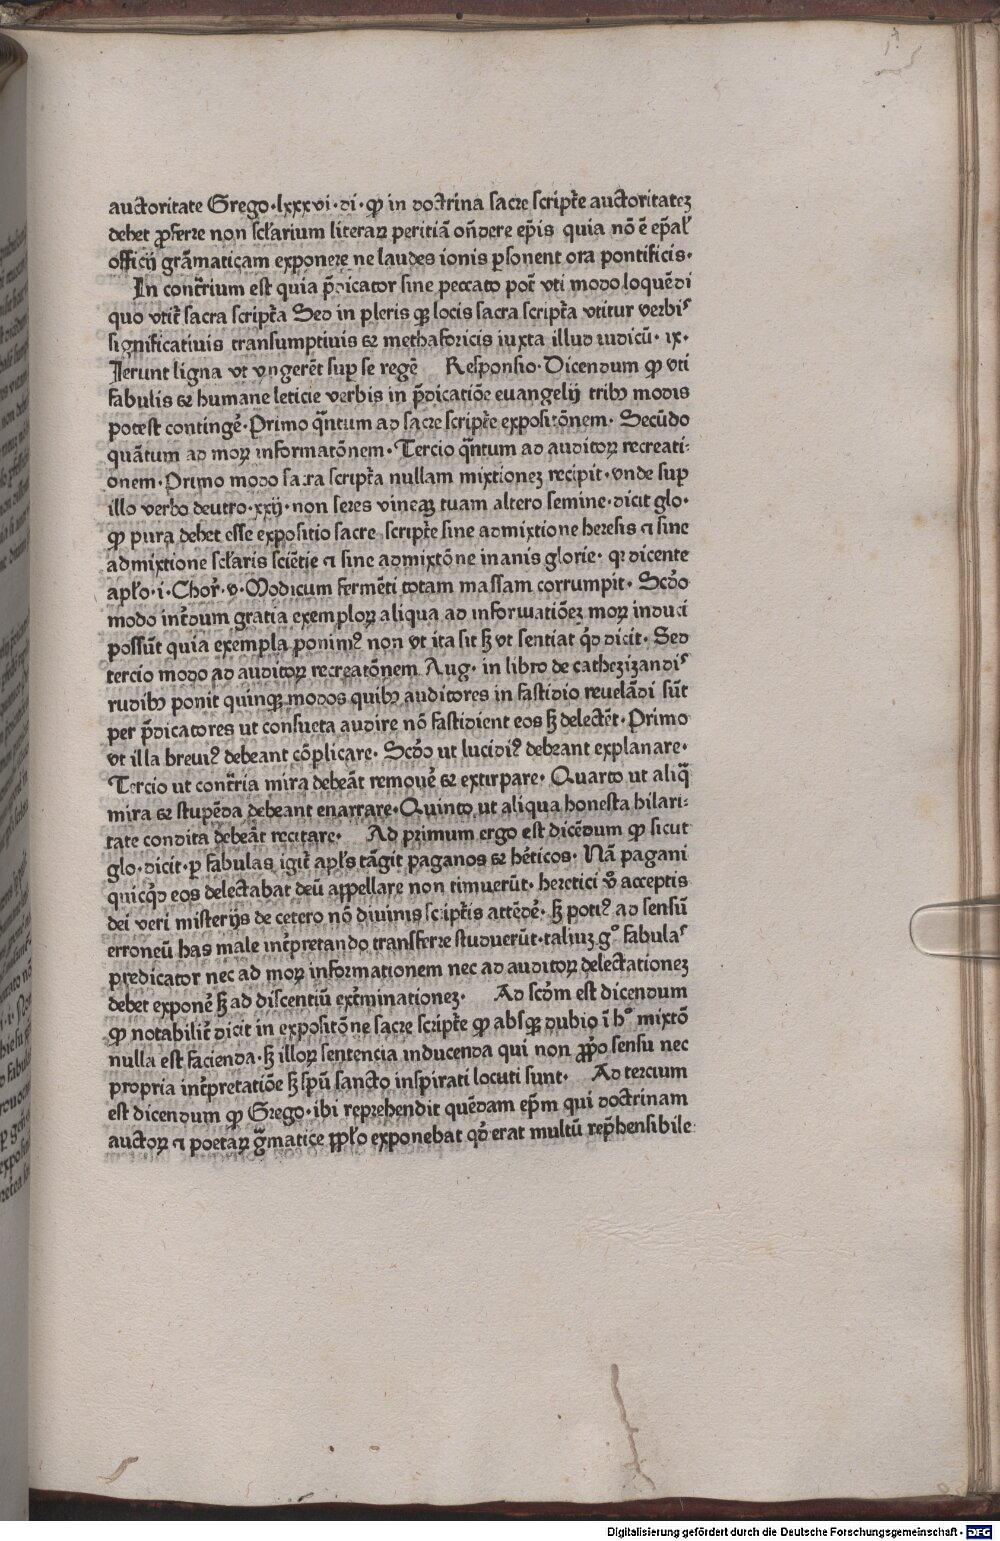 auctoritate Grego·lxxxvi·di·ꝙ in doctrina sacre scripte̅ auctoritateꝫ
debet ꝓferre non scl̓arium literaꝝ peritiā on̄dere ep̄is quia nō ē ep̄al̓
officij grāmaticam exponere ne laudes ionis ꝑsonent ora pontificis·
In contr̄ium est quia p̄dicator sine peccato pot̄ vti modo loquēdi
quo vtit̄ sacra script̄a Sed in pleris qꝫ locis sacra script̄a vtitur verbiˢ
significatiuis transumptiuis ⁊ methaforicis iuxta illud iudicū· ix·
Ierunt ligna vt vngerēt suꝑ se regē Responsio·Dicendum ꝙ vti
fabulis ⁊ humane leticie verbis in p̄dicatiōe euangelij tribꝰ modis
potest contingē·Primo qn̄tum ad sacre script̄e expositōnem· Secūdo
quātum ad moꝝ informatōnem·Tercio qn̄tum ad auditoꝝ recreati⸗
onem·Primo modo sacra script̄a nullam mixtioneꝫ recipit·vnde suꝑ
illo verbo deutro·xxij·non seres vineaꝫ tuam altero semine·dicit glo·
ꝙ pura debet esse expositio sacre script̄e sine admixtione heresis ⁊ sine
admixtione scl̓aris sciētie ⁊ sine admixtōne inanis glorie· qꝛ dicente
apl̓o·i·Chor̓·v·Modicum fermēti totam massam corrumpit· Scdo̓
modo int̄dum gratia exemploꝝ aliqua ad informatiōeꝫ moꝝ induci
possūt quia exempla ponimꝰ non vt ita sit sꝫ vt sentiat qd̓ dicit· Sed
tercio modo ad auditoꝝ recreatōnem Aug· in libro de cathezizandiˢ
rudibꝰ ponit quinqꝫ modos quibꝰ auditores in fastidio reuelādi sūt
per p̄dicatores ut consueta audire nō fastidient eos sꝫ delectēt·Primo
vt illa breuiꝰ debeant cōplicare· Scdo̓ ut lucidiꝰ debeant explanare·
Tercio ut contr̄ia mira debeāt remouē ⁊ extirpare· Quarto ut aliq̄
mira ⁊ stupēda debeant enarrare·Quinto ut aliqua honesta hilari⸗
tate condita debeāt recitare· Ad primum ergo est dicēdum ꝙ sicut
glo·dicit·ꝑ fabulas igit̄ apl̓s tāgit paganos ⁊ hēticos· Nā pagani
quicqd̓ eos delectabat deū appellare non timuerūt·heretici v̊ acceptis
dei veri misterijs de cetero nō diuinis script̄is attēdē· sꝫ potiꝰ ad sensū
erroneū has male int̄pretando transferre studuerūt·taliuꝫ gͦ fabulaˢ
predicator nec ad moꝝ informationem nec ad auditoꝝ delectationeꝫ
debet exponē sꝫ ad discentiū ext̄minationeꝫ· Ad scdm est dicendum
ꝙ notabilit̄ dicit in expositōne sacre script̄e ꝙ absqꝫ dubio ī hͦ mixtō
nulla est facienda·sꝫ illoꝝ sentencia inducenda qui non ꝓpo̓ sensu nec
propria int̄pretatiōe sꝫ spū sancto inspirati locuti sunt· Ad tercium
est dicendum ꝙ Grego·ibi reprehendit quēdam ep̄m qui doctrinam
auctoꝝ ⁊ poetaꝝ gͣmatice ꝓpl̓o exponebat qd̓ erat multū rep̄hensibile·
Digitalisierung gefördert durch die Deutsche Forschungsgemeinschaft · DFG